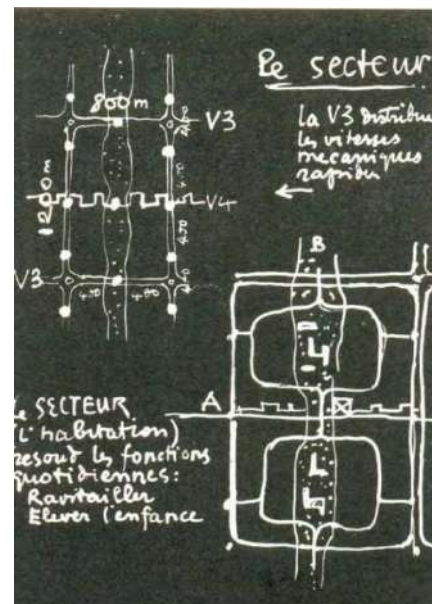 Le secteur
800m
V3
la V3 distribue
les vitesses
mecaniques
rapides
1200m
V4
V3
400
400
B
A
Le SECTEUR
(l'habitation)
resoud les fonctions
quotidiennes:
Ravitailler
Elever l'enfance